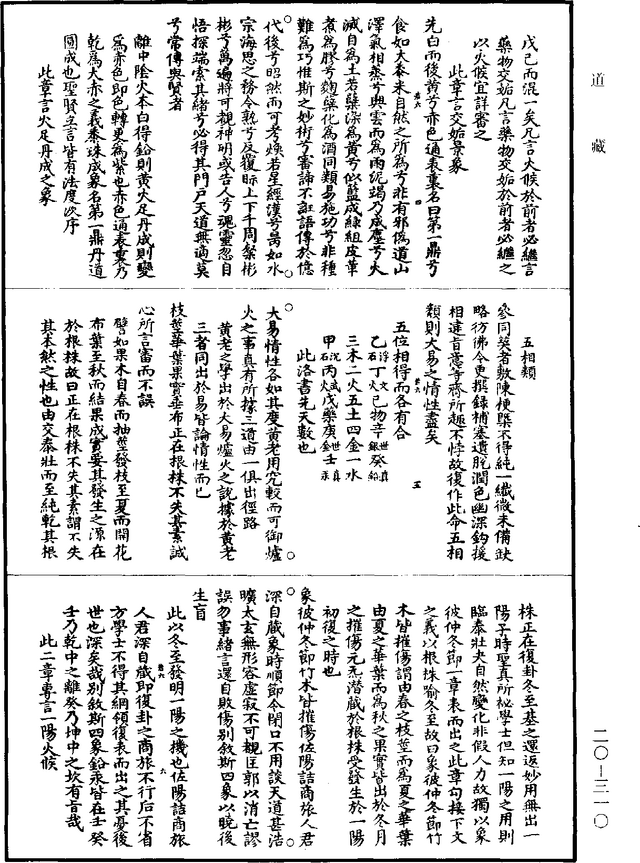 道藏
戊己而混一矣凡言火候於前者必繼言
藥物交姤凡言藥物交姤於前者必繼之
以火候宜詳審之
此章言交姤景象
先白而後黃兮赤色通表裏名曰第一鼎兮
食如大黍米自然之所為兮非有邪偽道山
澤氣相蒸兮興雲而為雨泥竭乃成塵兮火
滅自為土若蘗染為黃兮似藍成綠組皮革
煮為膠兮麴蘗化為酒同類易施功兮非種
難為巧惟斯之妙術兮審諦不誑語傳於億
代後兮昭然而可考煥若星經漢兮昺如水
宗海思之務令熟兮反復眎上下千周粲彬
彬兮萬遍將可覩神明或告人兮魂靈忽自
悟探端索其緒兮必得其門戶天道無適莫
兮常傳與賢者
離中陰火本白得鉛則黃火足丹成則變
為赤色即色轉更為紫也赤色通表裏乃
乾為大赤之義黍珠成象名第一鼎丹道
圓成也聖賢立言皆有法度次序
此章言火足丹成之象
五相類
參同契者敷陳梗槩不得純一纖微未備缺
略彷彿今更撰錄補塞遺脫潤色幽深鈎援
相逮旨意等齊所趣不悖故復作此命五相
類則大易之情性盡矣
五位相得而各有合
三木二火五土四金一水
此洛書先天數也
大易情性各如其度黃老用究較而可御爐
火之事真有所據三道由一俱出徑路
黃老之學出於大易爐火之說據於黃老
三者同出於易皆論情性而已
枝莖華葉果實垂布正在根株不失其素誠
心所言審而不誤
譬如果木自春而抽莖發枝至夏而開花
布葉至秋而結果成實要其發生之源在
於根株故曰正在根株不失其素謂不失
其本然之性也由交泰壯而至純乾其根
株正在復卦冬至基之還返妙用無出一
陽子時聖真所祕學士但知一陽之用則
臨泰壯夬自然變化非假人力故獨以象
彼仲冬節一章表而出之此章勾接下文
之義以根株喻冬至故曰象彼仲冬節竹
木皆摧傷謂由春之枝莖而為夏之華葉
由夏之華葉而為秋之果實皆出於冬月
之摧傷元炁潛藏於根株受發生於一陽
初復之時也
象彼仲冬節竹木皆摧傷佐陽詰商旅人君
深自藏象時順節令閉口不用談天道甚浩
曠太玄無形容虛寂不可覩匡郭以消亡謬
誤勿事緒言還自敗傷別敘斯四象以曉後
生盲
此以冬至發明一陽之機也佐陽詰商旅
人君深自藏即復卦之商旅不行后不省
方學士不得其綱領復表而出之其憂後
世也深矣哉別敘斯四象鉛汞皆在壬癸
壬乃乾中之離癸乃坤中之坎有旨哉
此二章專言一陽火候
二〇—三一〇